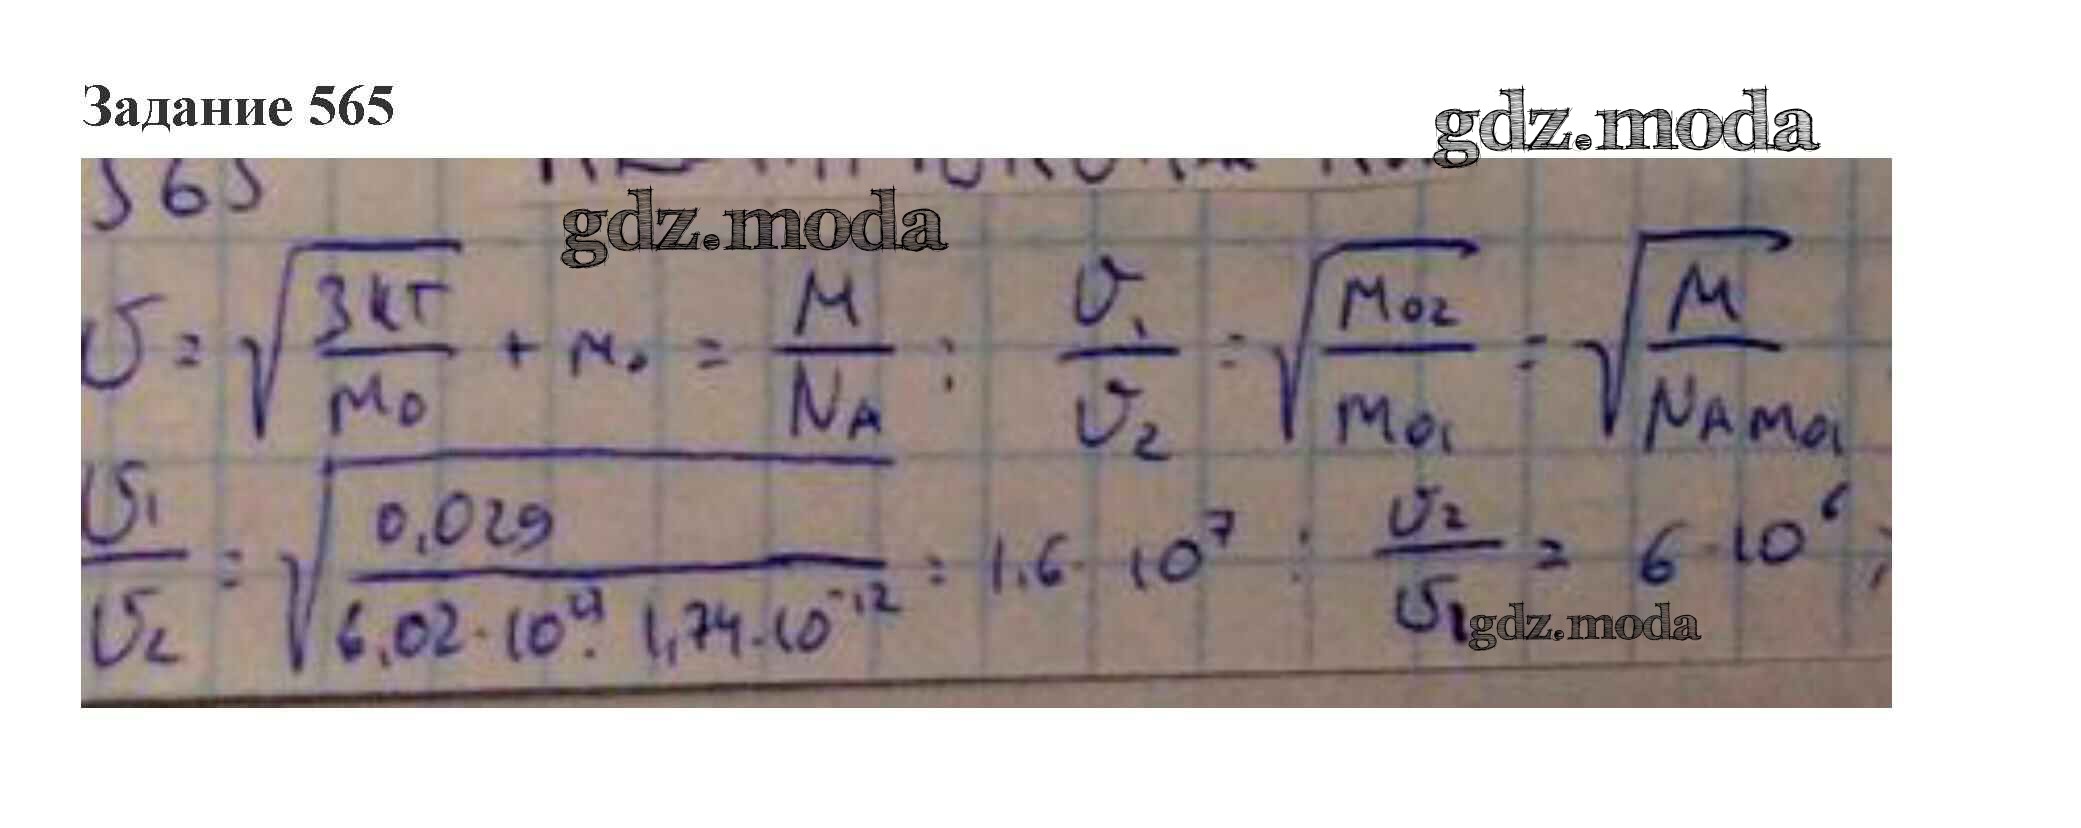 Задание 565
gdz.moda
565
gdz.moda
υ = √(3кТ/м₀) + м₀ = М/N_A ; υ₁/υ₂ = √(м₀₂/м₀₁) = √(М/(N_A м₀₁))
υ₁/υ₂ = √(0,029/(6,02·10²³·1,74·10⁻¹²)) = 1,6·10⁷ ; υ₂/υ₁ = 6·10⁶ ;
gdz.moda